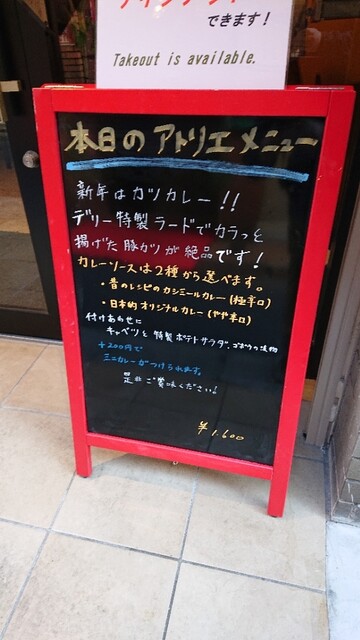 テイクアウト
できます!
Takeout is available.
本日のアトリエメニュー
新年はカツカレー!!
デリー特製ラードでカラっと
揚げた豚カツが絶品です!
カレーソースは2種から選べます。
・昔のレシピのカシミールカレー(極辛口)
・日本的オリジナルカレー(やや辛口)
付けあわせに
キャベツと特製ポテトサラダ、
+200円で
ミニカレーがつけられます。
是非ご賞味ください!
¥1,600